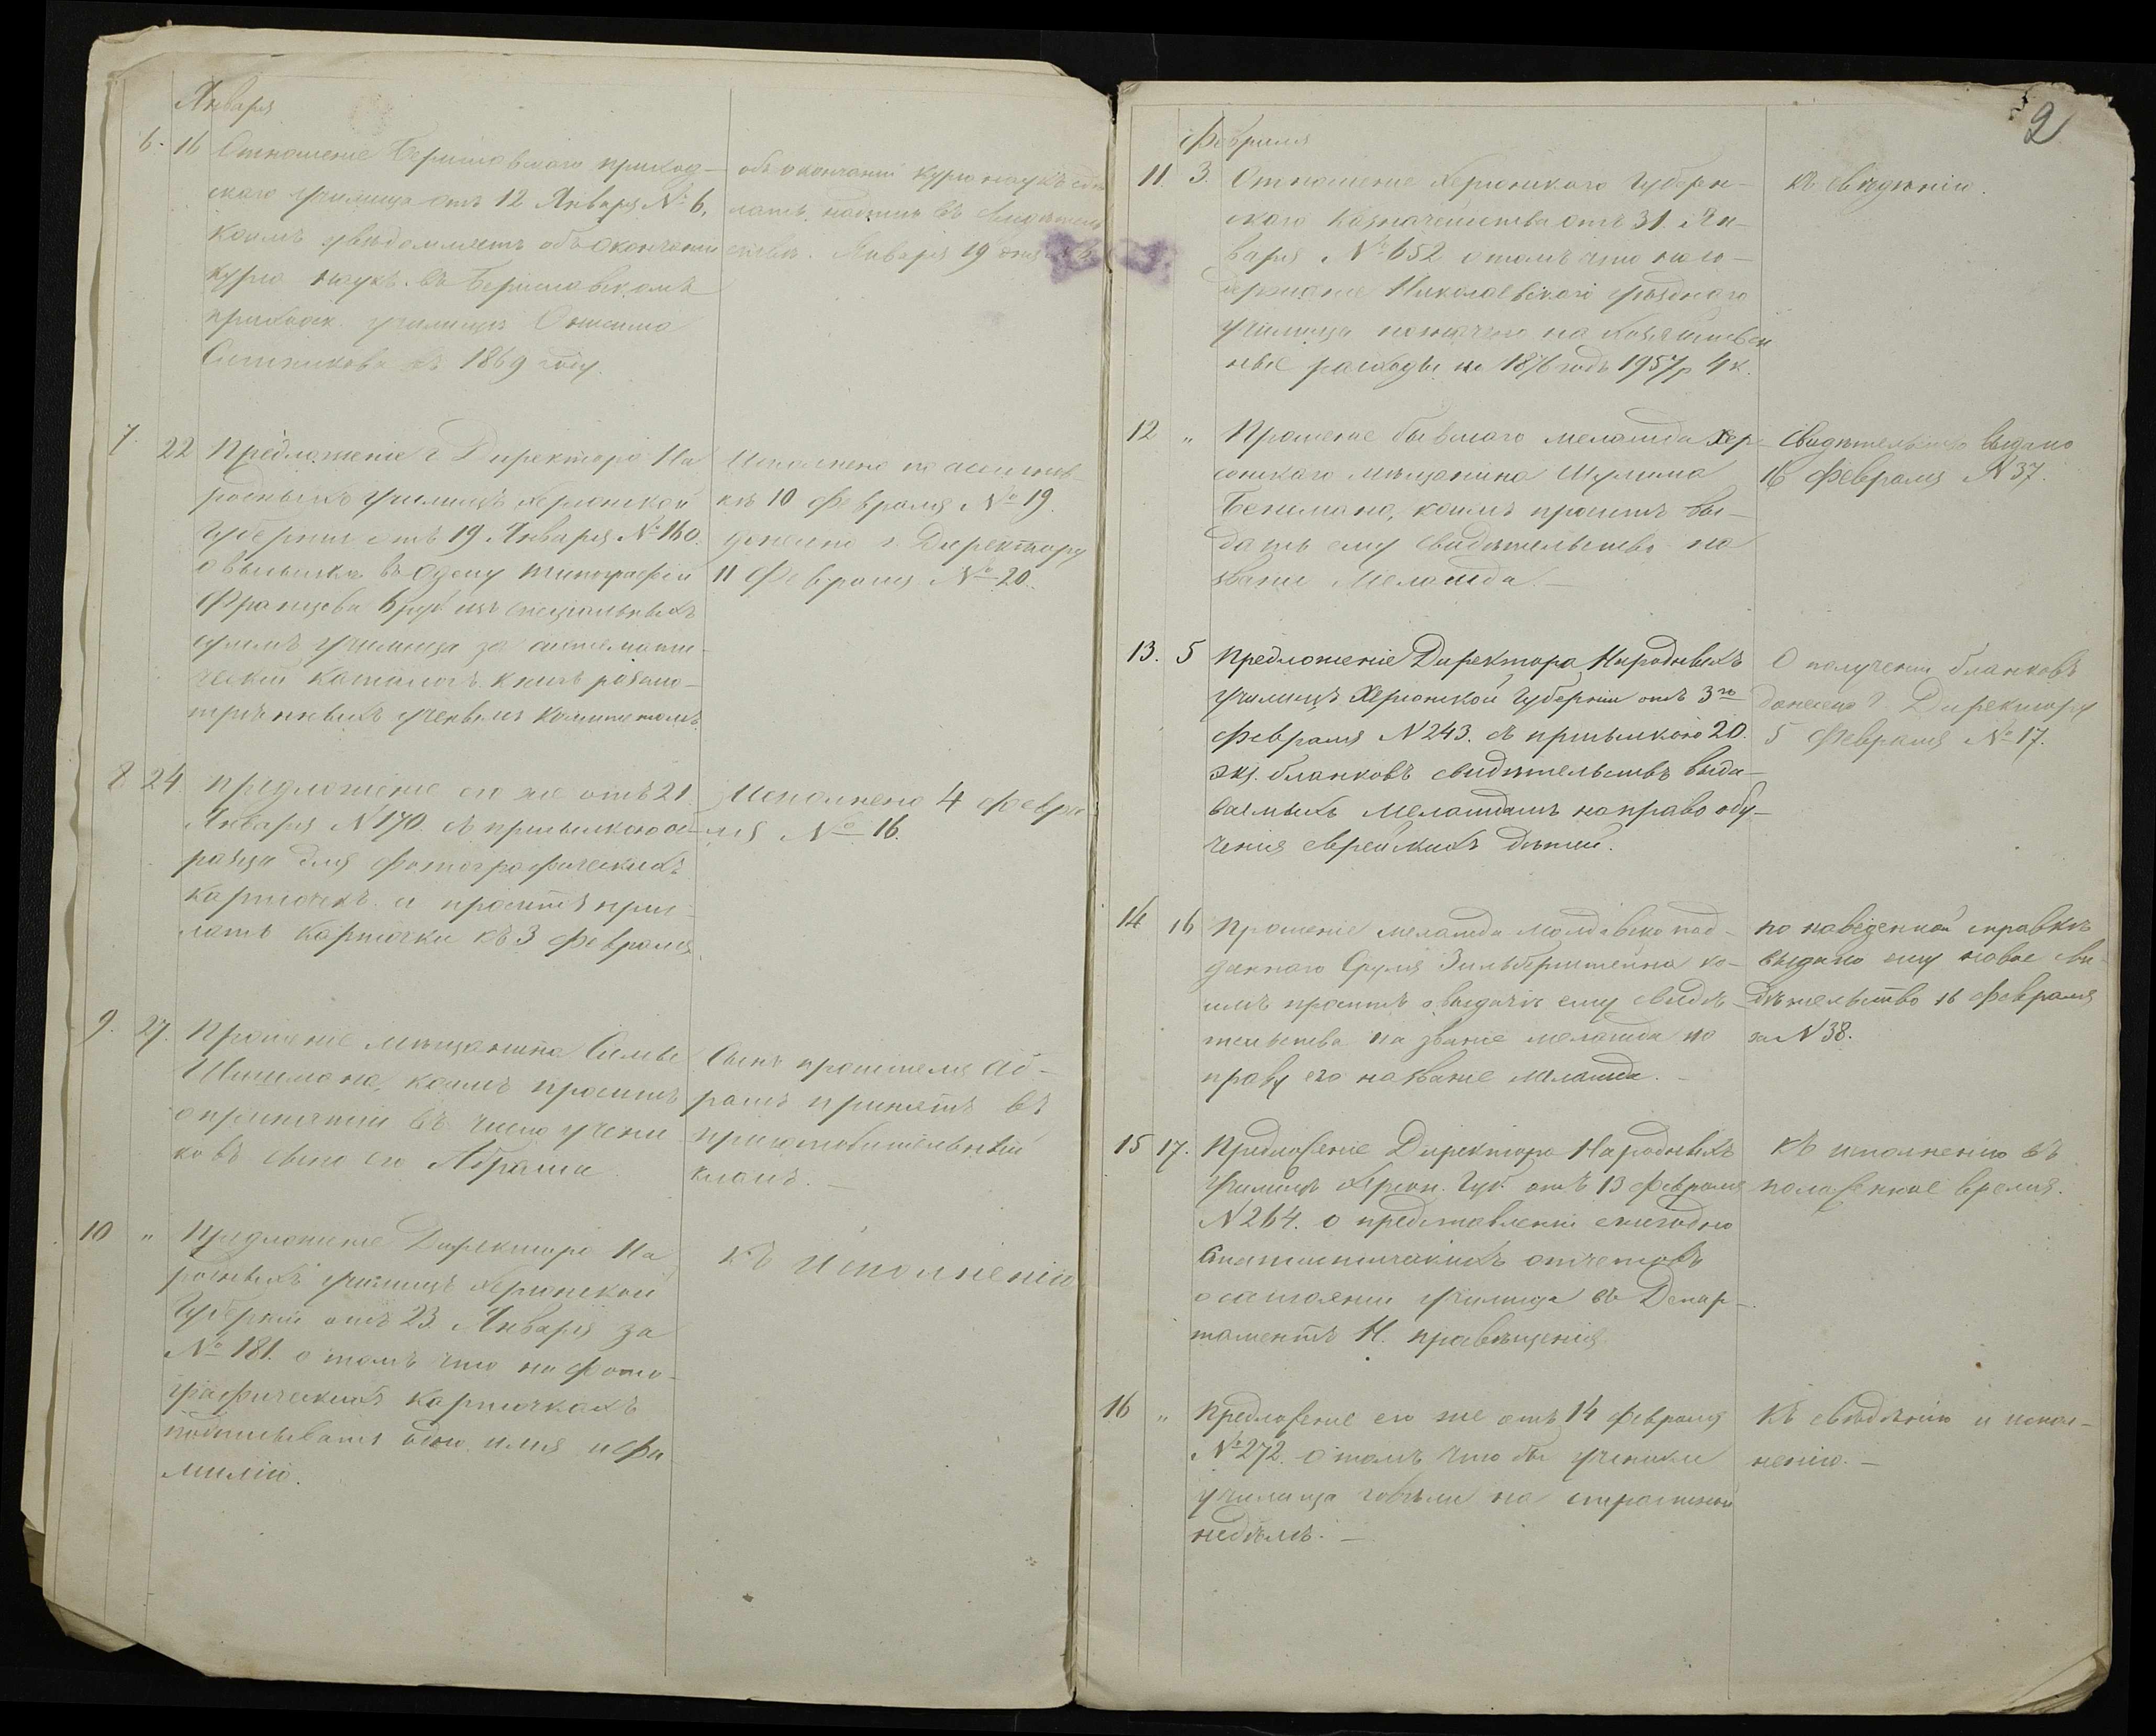 Января
6. 16 Отношеніе Бериславскаго приход-
скаго училища отъ 12 Января № 6,
коимъ увѣдомляетъ объ окончаніи
курса наукъ въ Бериславскомъ
приходск. училищѣ Онисима
Ситникова въ 1869 году.
объ окончаніи курса наукъ сдѣ
лать надпись въ свидѣтель
ствѣ. Января 19 дня
7. 22 Предложеніе г Директора На
родныхъ училищъ Херсонской
Губерніи отъ 19 Января № 160.
о высылкѣ въ Одессу типографіи
Францова 6 руб изъ спеціальныхъ
суммъ училища за систематы-
ческій каталогъ книгъ разсмо-
трѣнныхъ ученымъ комитетомъ
Исполнено по
кѣ 10 Февраля № 19.
донесено г. Директору
11 Февраля № 20.
8 24 Предложеніе его же отъ 21
Января № 170. съ присылкою об-
разца для фотографическихъ
карточекъ и проситъ прис-
лать карточки къ 3 Февраля
Исполнено 4 Февра
ля № 16.
9. 27. Прошеніе мѣщанина
Шишмана, коимъ проситъ
о принятіи въ число учени
ковъ сына его Абрама
Сынъ просителя Аб-
рамъ принятъ въ
приготовительный
классъ. —
10 „ Предложеніе Директора На
родныхъ училищъ Херсонской
Губерніи отъ 23 Января за
№ 181. о томъ что на фото-
графическихъ карточкахъ
подписывать имя и фа
милію.
къ исполненію
2
Февраля
11. 3. Отношеніе Херсонскаго Губерн-
скаго Казначейства отъ 31 Ян-
варя № 652 о томъ что на со-
держаніе Николаевскаго уѣзднаго
училища назначено на хозяйствен
ные расходы на 1876 годъ 1957 р 4 к.
къ свѣдѣнію.
12 „ Прошеніе бывшаго меламда Хер-
сонскаго мѣщанина Шулима
Бекимана, коимъ проситъ вы-
дать ему свидѣтельство на
званіе Меламда. —
Свидѣтельство выдано
16 Февраля № 37.
13. 5 Предложеніе Директора Народныхъ
училищъ Херсонской Губерніи отъ 3го
Февраля № 243. съ присылкою 20.
экз. бланковъ свидѣтельствъ выда-
ваемыхъ Меламдамъ на право обу-
ченія еврейскихъ дѣтей.
О полученіи бланковъ
донесено г. Директору
5 Февраля № 17.
14 16 Прошеніе меламда Молдавско под-
даннаго Сруля Зильберштейна ко-
имъ проситъ о выдачѣ ему свидѣ-
тельства на званіе меламда по
праву его на званіе меламда. —
по наведенной справкѣ
выдано ему новое сви-
дѣтельство 16 Февраля
за № 38.
15 17. Предложеніе Директора Народныхъ
Училищъ Херсон. Губ. отъ 13 Февраля
№ 264. о представленіи ежегодно
статистическихъ отчетовъ
о состояніи училища въ Депар-
таментъ Н. просвѣщенія.
Къ исполненію въ
положенное время.
16 „ Предложеніе его же отъ 14 Февраля
№ 272. о томъ что бы ученики
училища говѣли на страстной
недѣлѣ. —
Къ свѣдѣнію и испол-
ненію. —